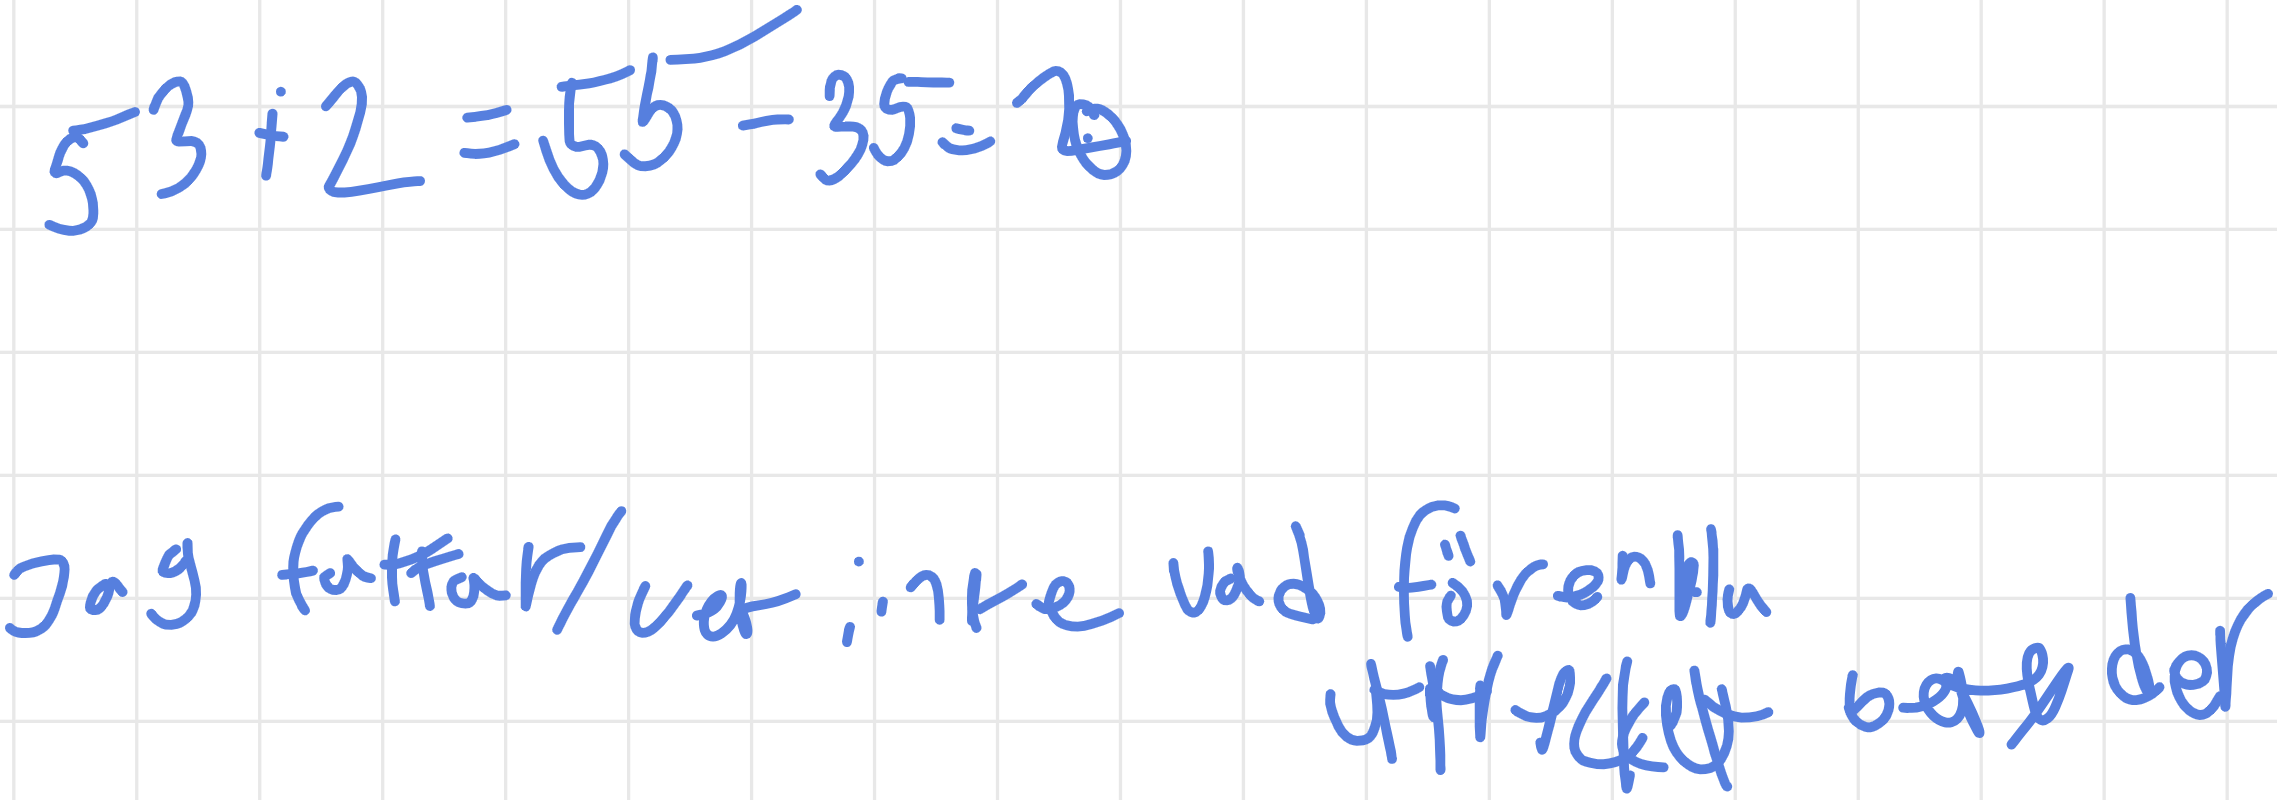 53 + 2 = 55 - 35 = 20
Jag fattar/vet inte vad förenkla
uttrycket betyder